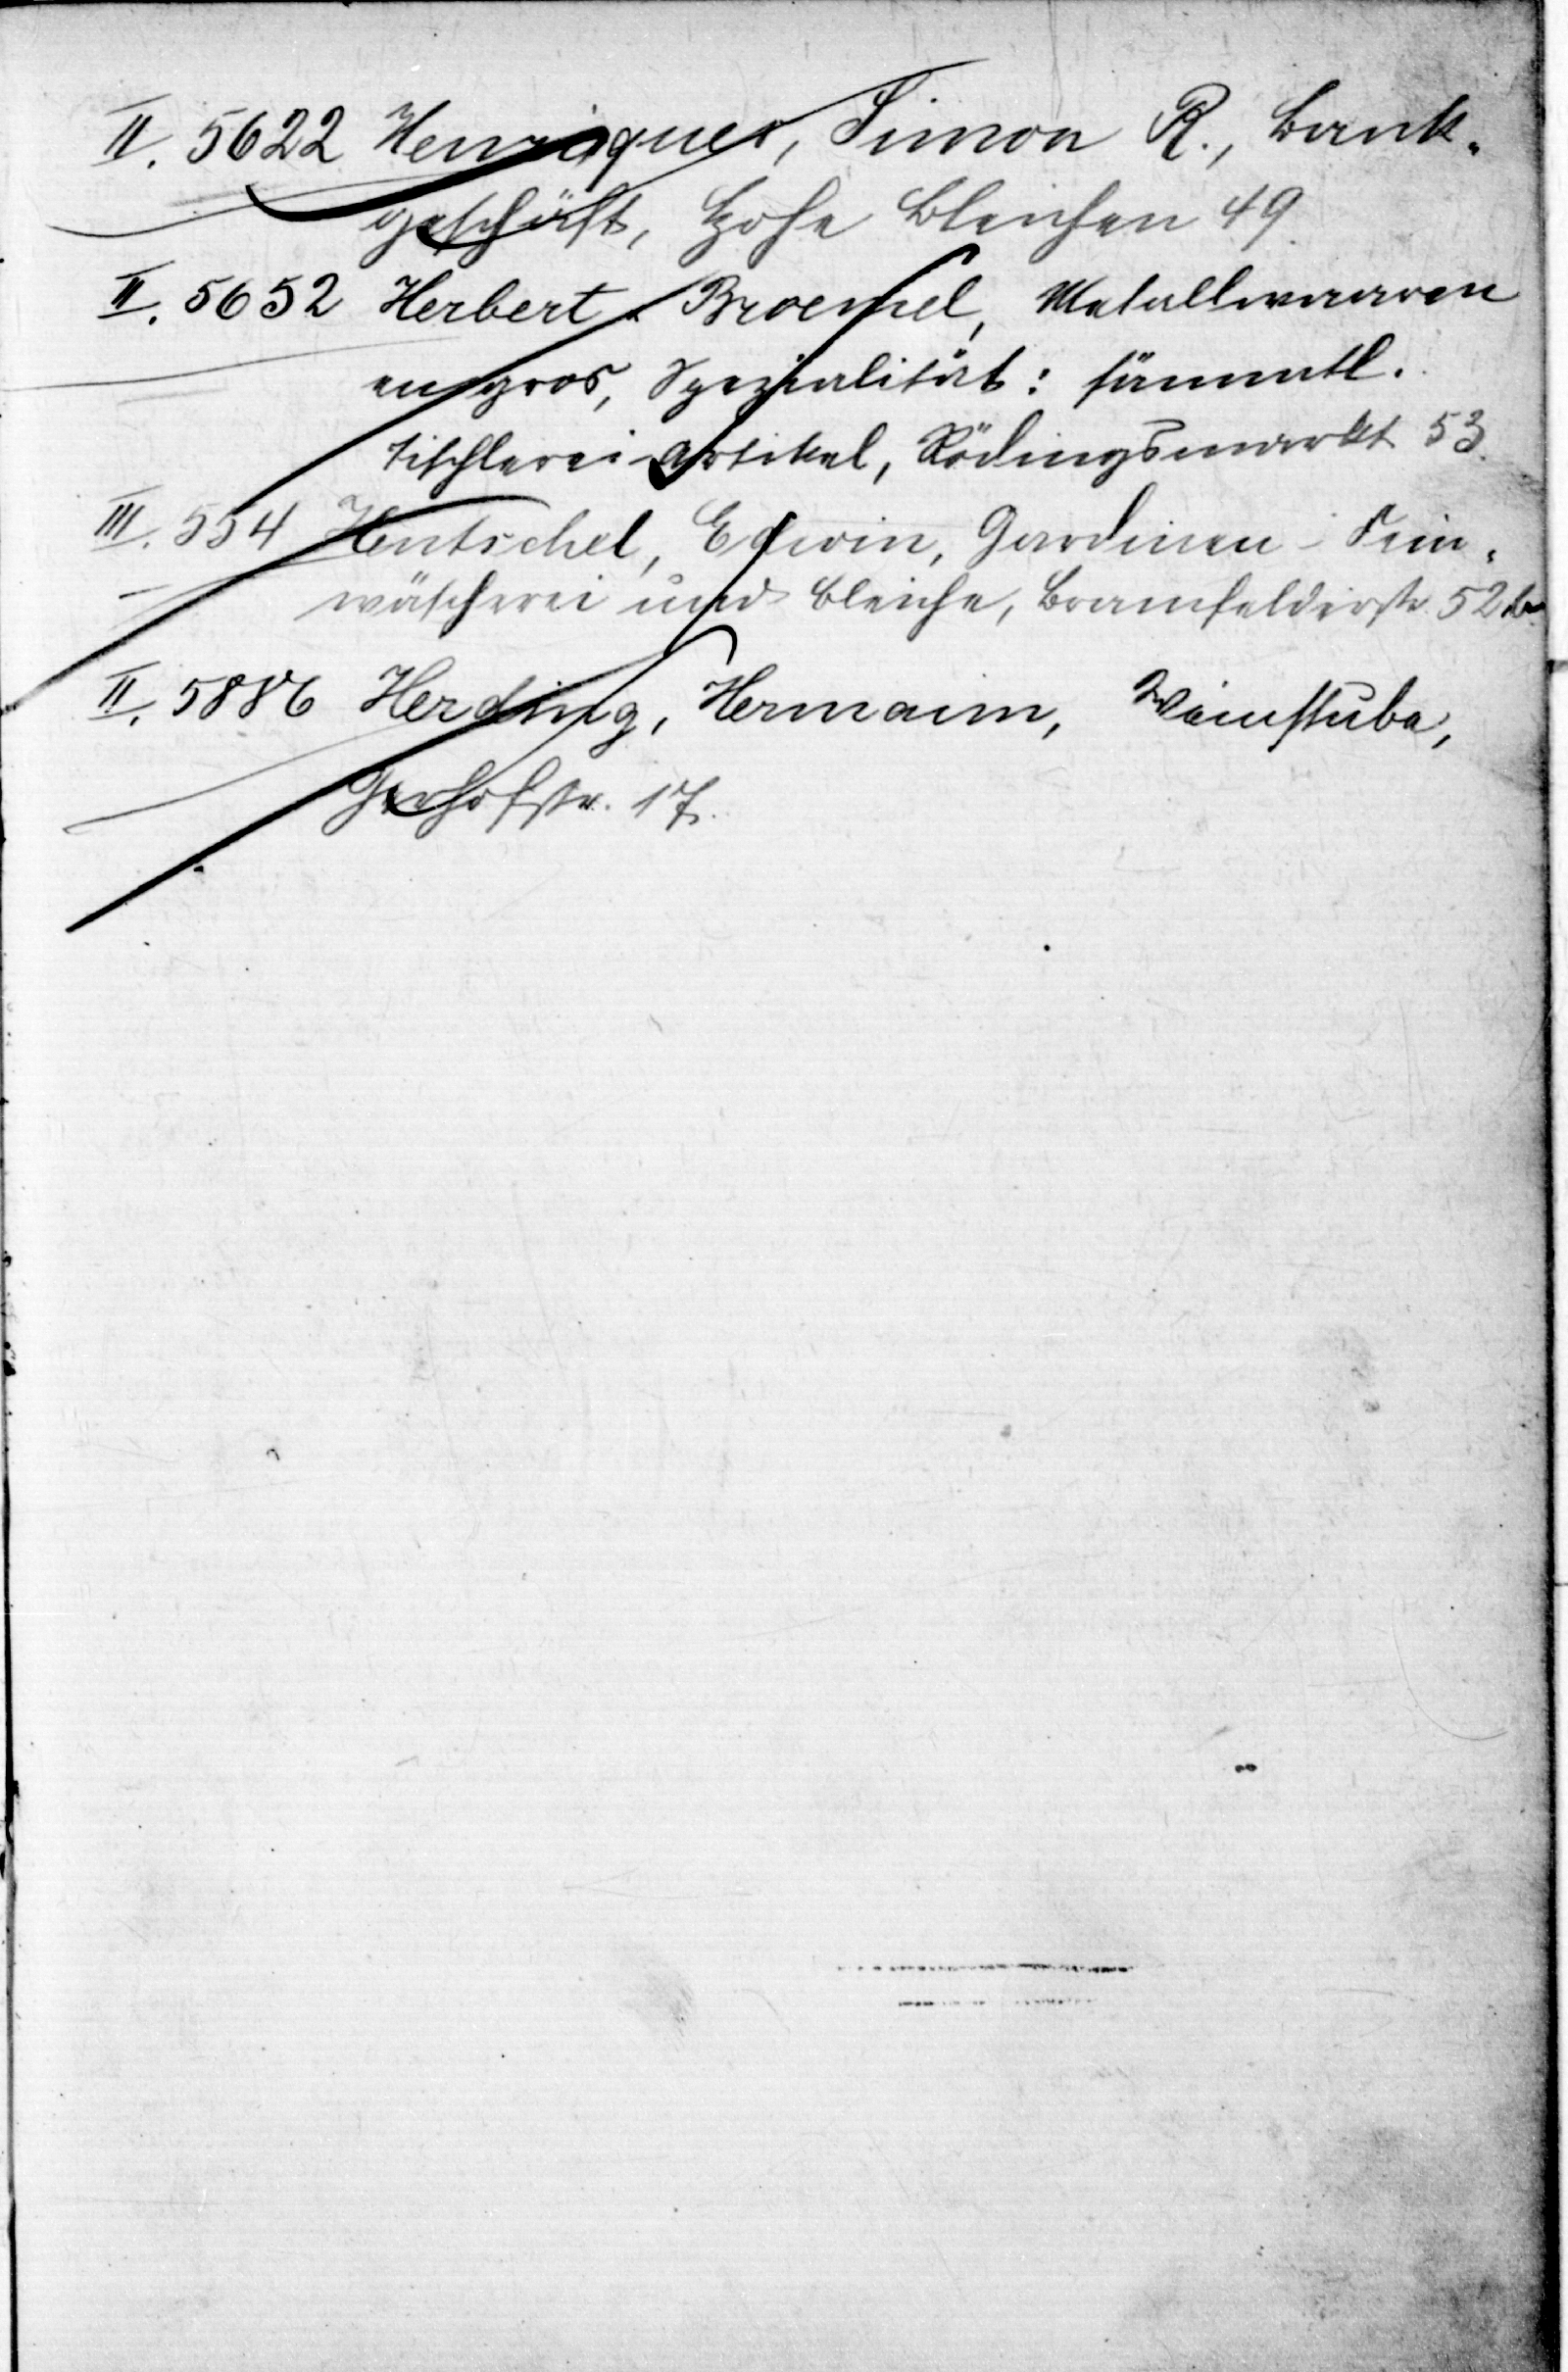 II. 5622 Henriques, Simon R., Bank-
geschäft, Hohe Bleichen 49.
II. 5652 Herbert & Broemel, Metallwaaren
en gros, Spezialität: sämmtl.
Tischlerei-Artikel, Rödingsmarkt 53.
III. 554 Hentschel, Edwin, Gardinen-Fein-
wäscherei und Bleiche, Bramfelderstr. 52
II. 5886 Herding, Hermann, Weinstube,
Gerhofstr. 17.